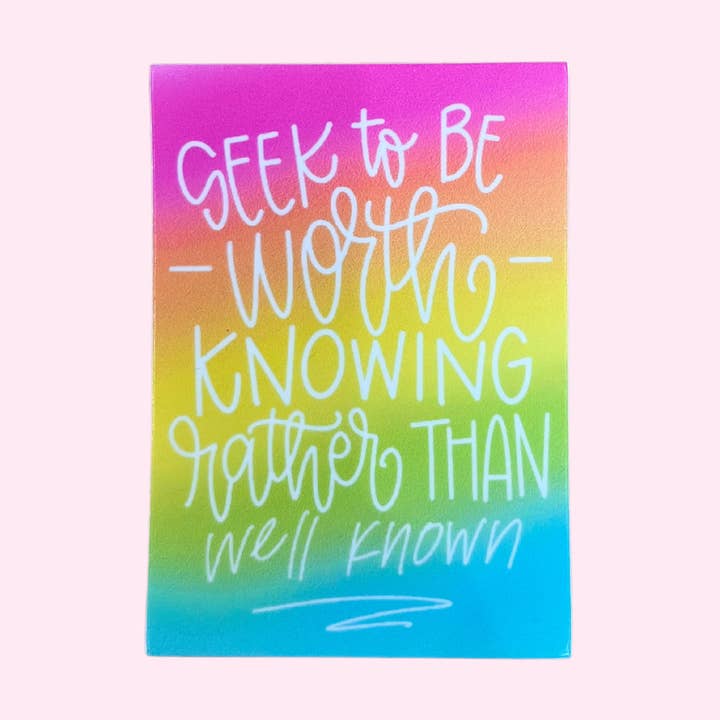 SEEK to BE
- worth -
KNOWING
rather THAN
well known